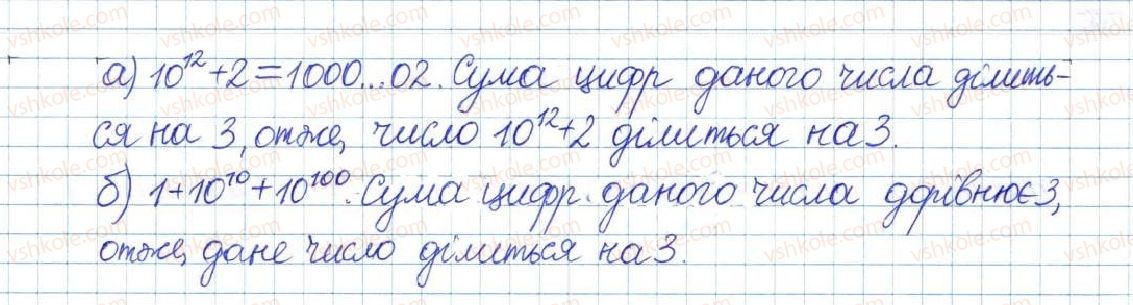 а) 10¹² + 2 = 1000...02. Сума цифр даного числа ділить-
ся на 3, отже, число 10¹² + 2 ділиться на 3.
б) 1 + 10¹⁰ + 10¹⁰⁰. Сума цифр даного числа дорівнює 3,
отже, дане число ділиться на 3.